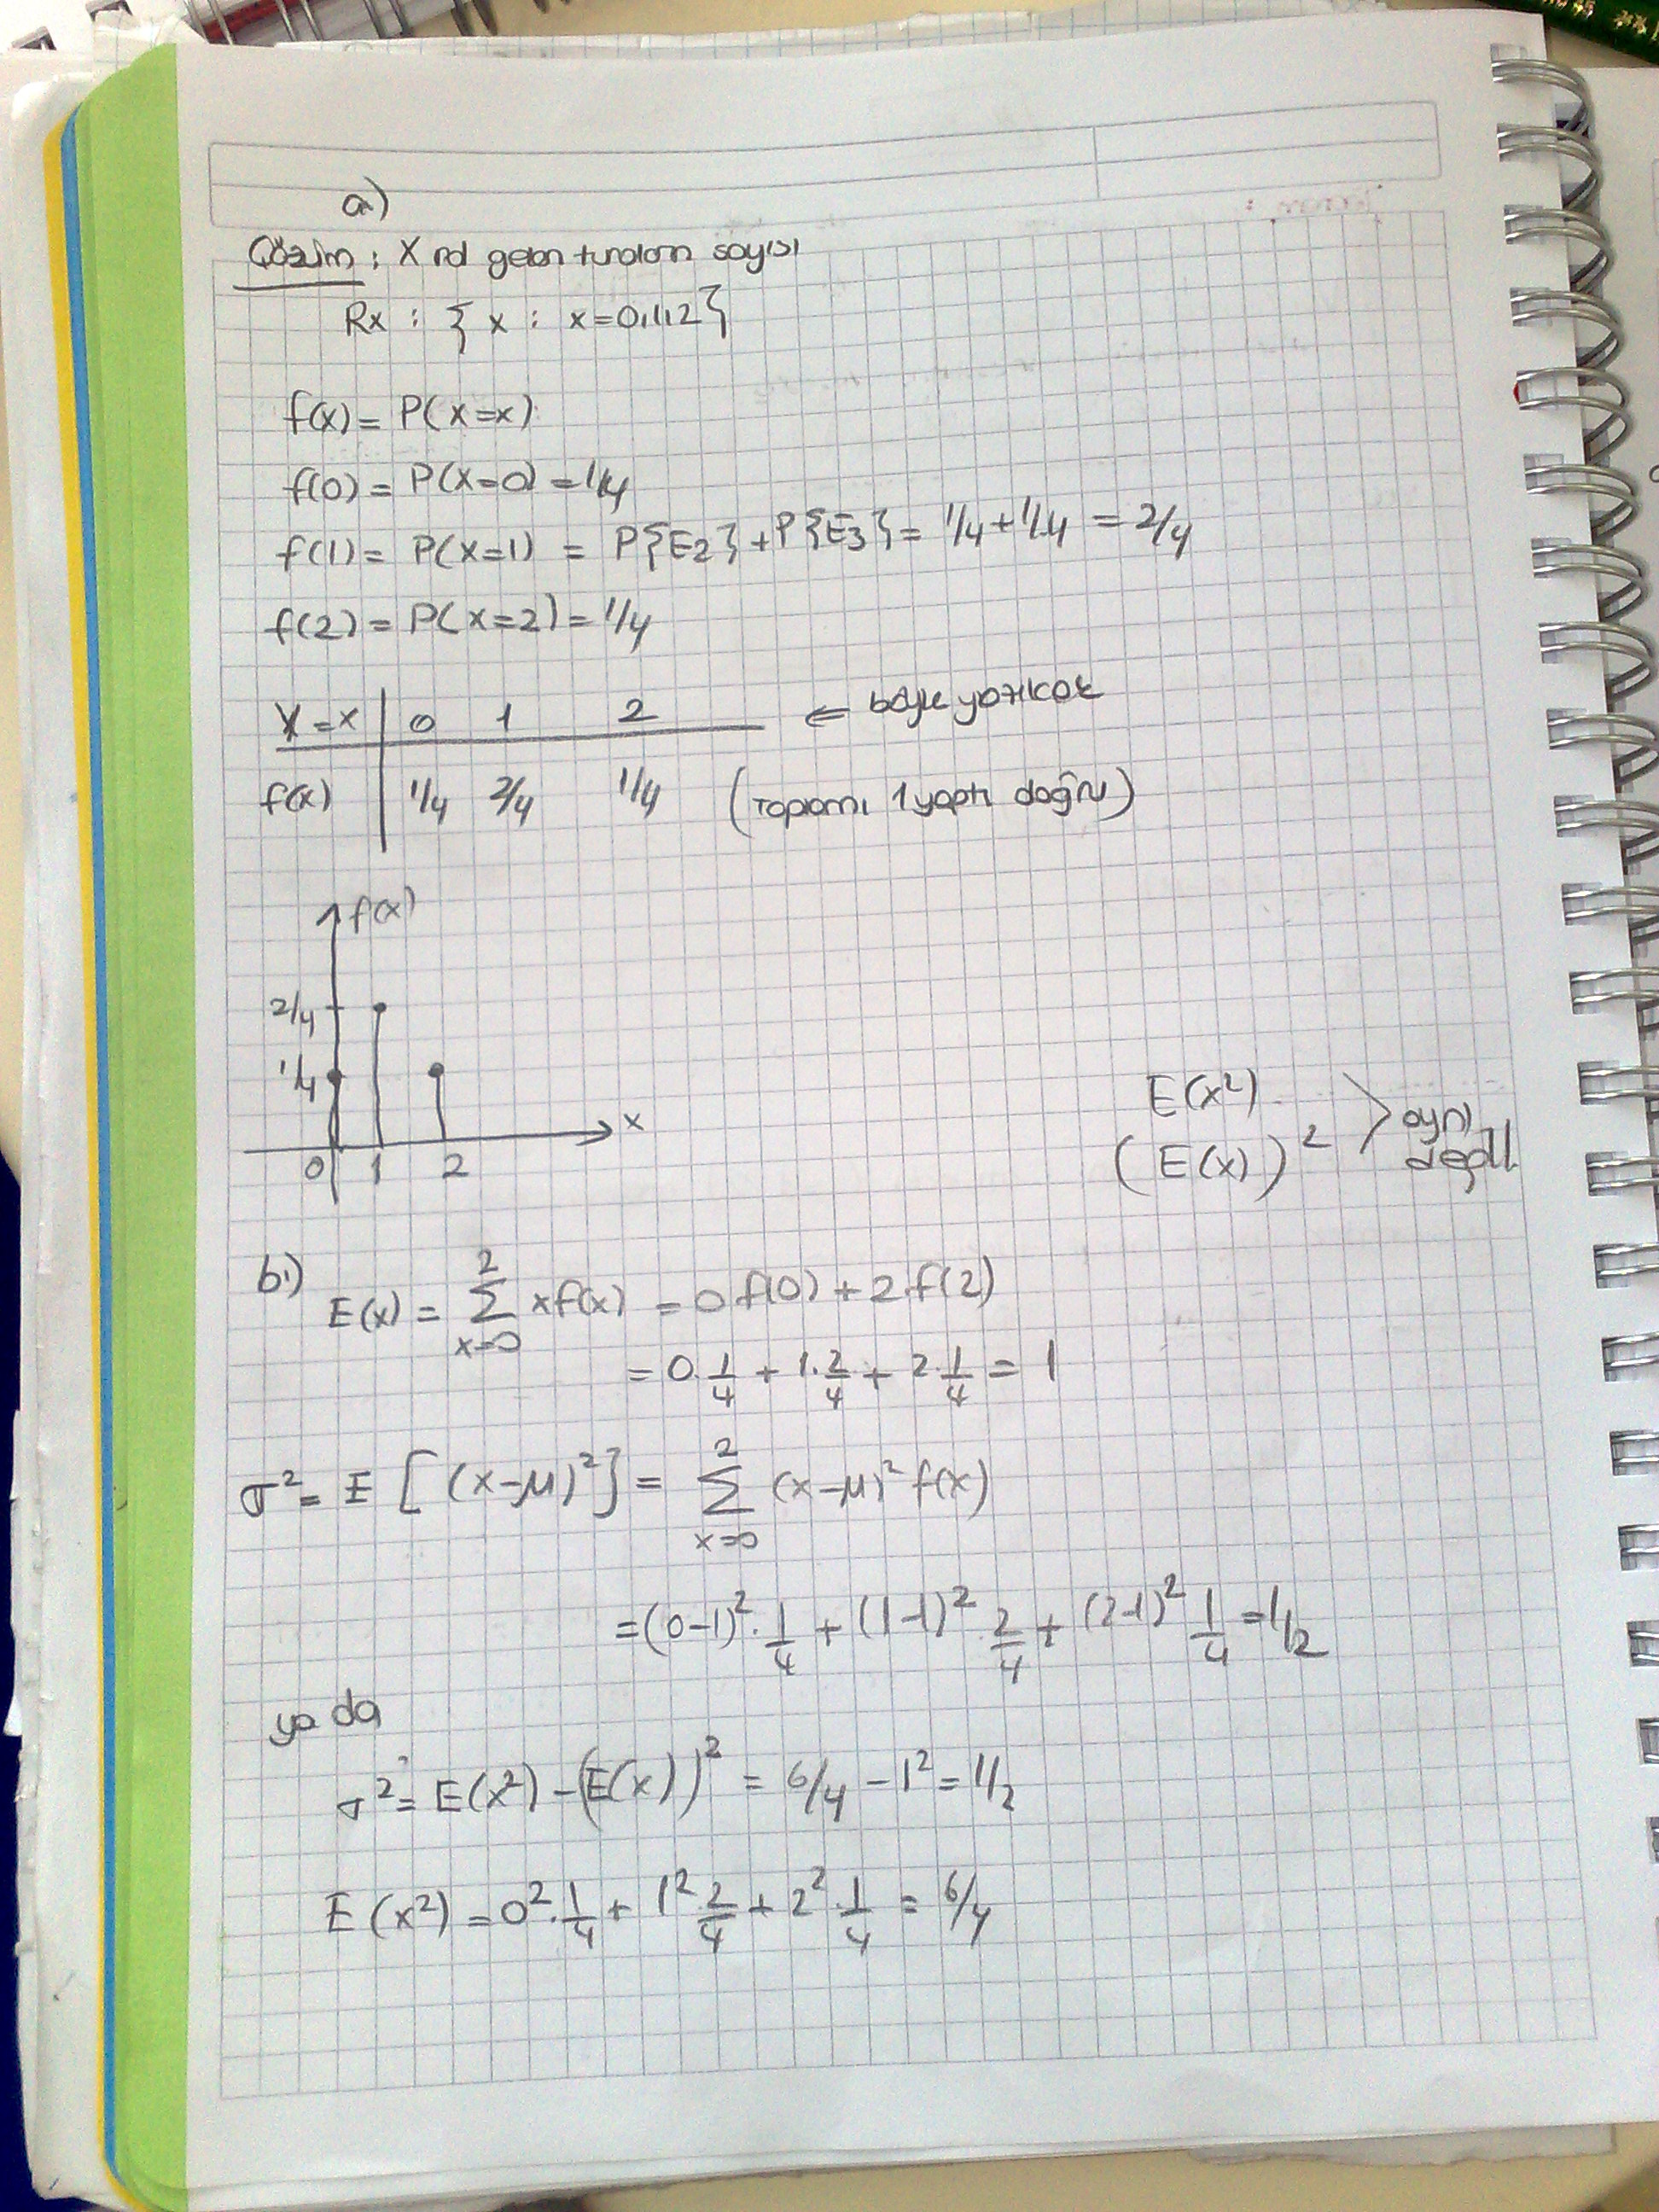 a)
Çözüm : X rd gelen turaların sayısı
Rx : { x : x=0,1,2 }
f(x) = P(X=x)
f(0) = P(X=0) = 1/4
f(1) = P(X=1) = P{E2} + P{E3} = 1/4 + 1/4 = 2/4
f(2) = P(X=2) = 1/4
X=x | 0 1 2 ⇐ böyle yazılcak
f(x) | 1/4 2/4 1/4 (Toplamı 1 yaptı doğru)
f(x)
2/4
1/4
x
0 1 2
E(x²)
(E(x))² > aynı değil
b)
E(x) = 2 Σ x=0 xf(x) = 0.f(0) + 2.f(2)
= 0.1/4 + 1.2/4 + 2.1/4 = 1
σ² = E[(x-μ)²] = 2 Σ x=0 (x-μ)² f(x)
= (0-1)².1/4 + (1-1)².2/4 + (2-1)² 1/4 = 1/2
ya da
σ² = E(x²) - (E(x))² = 6/4 - 1² = 1/2
E(x²) = 0².1/4 + 1².2/4 + 2².1/4 = 6/4